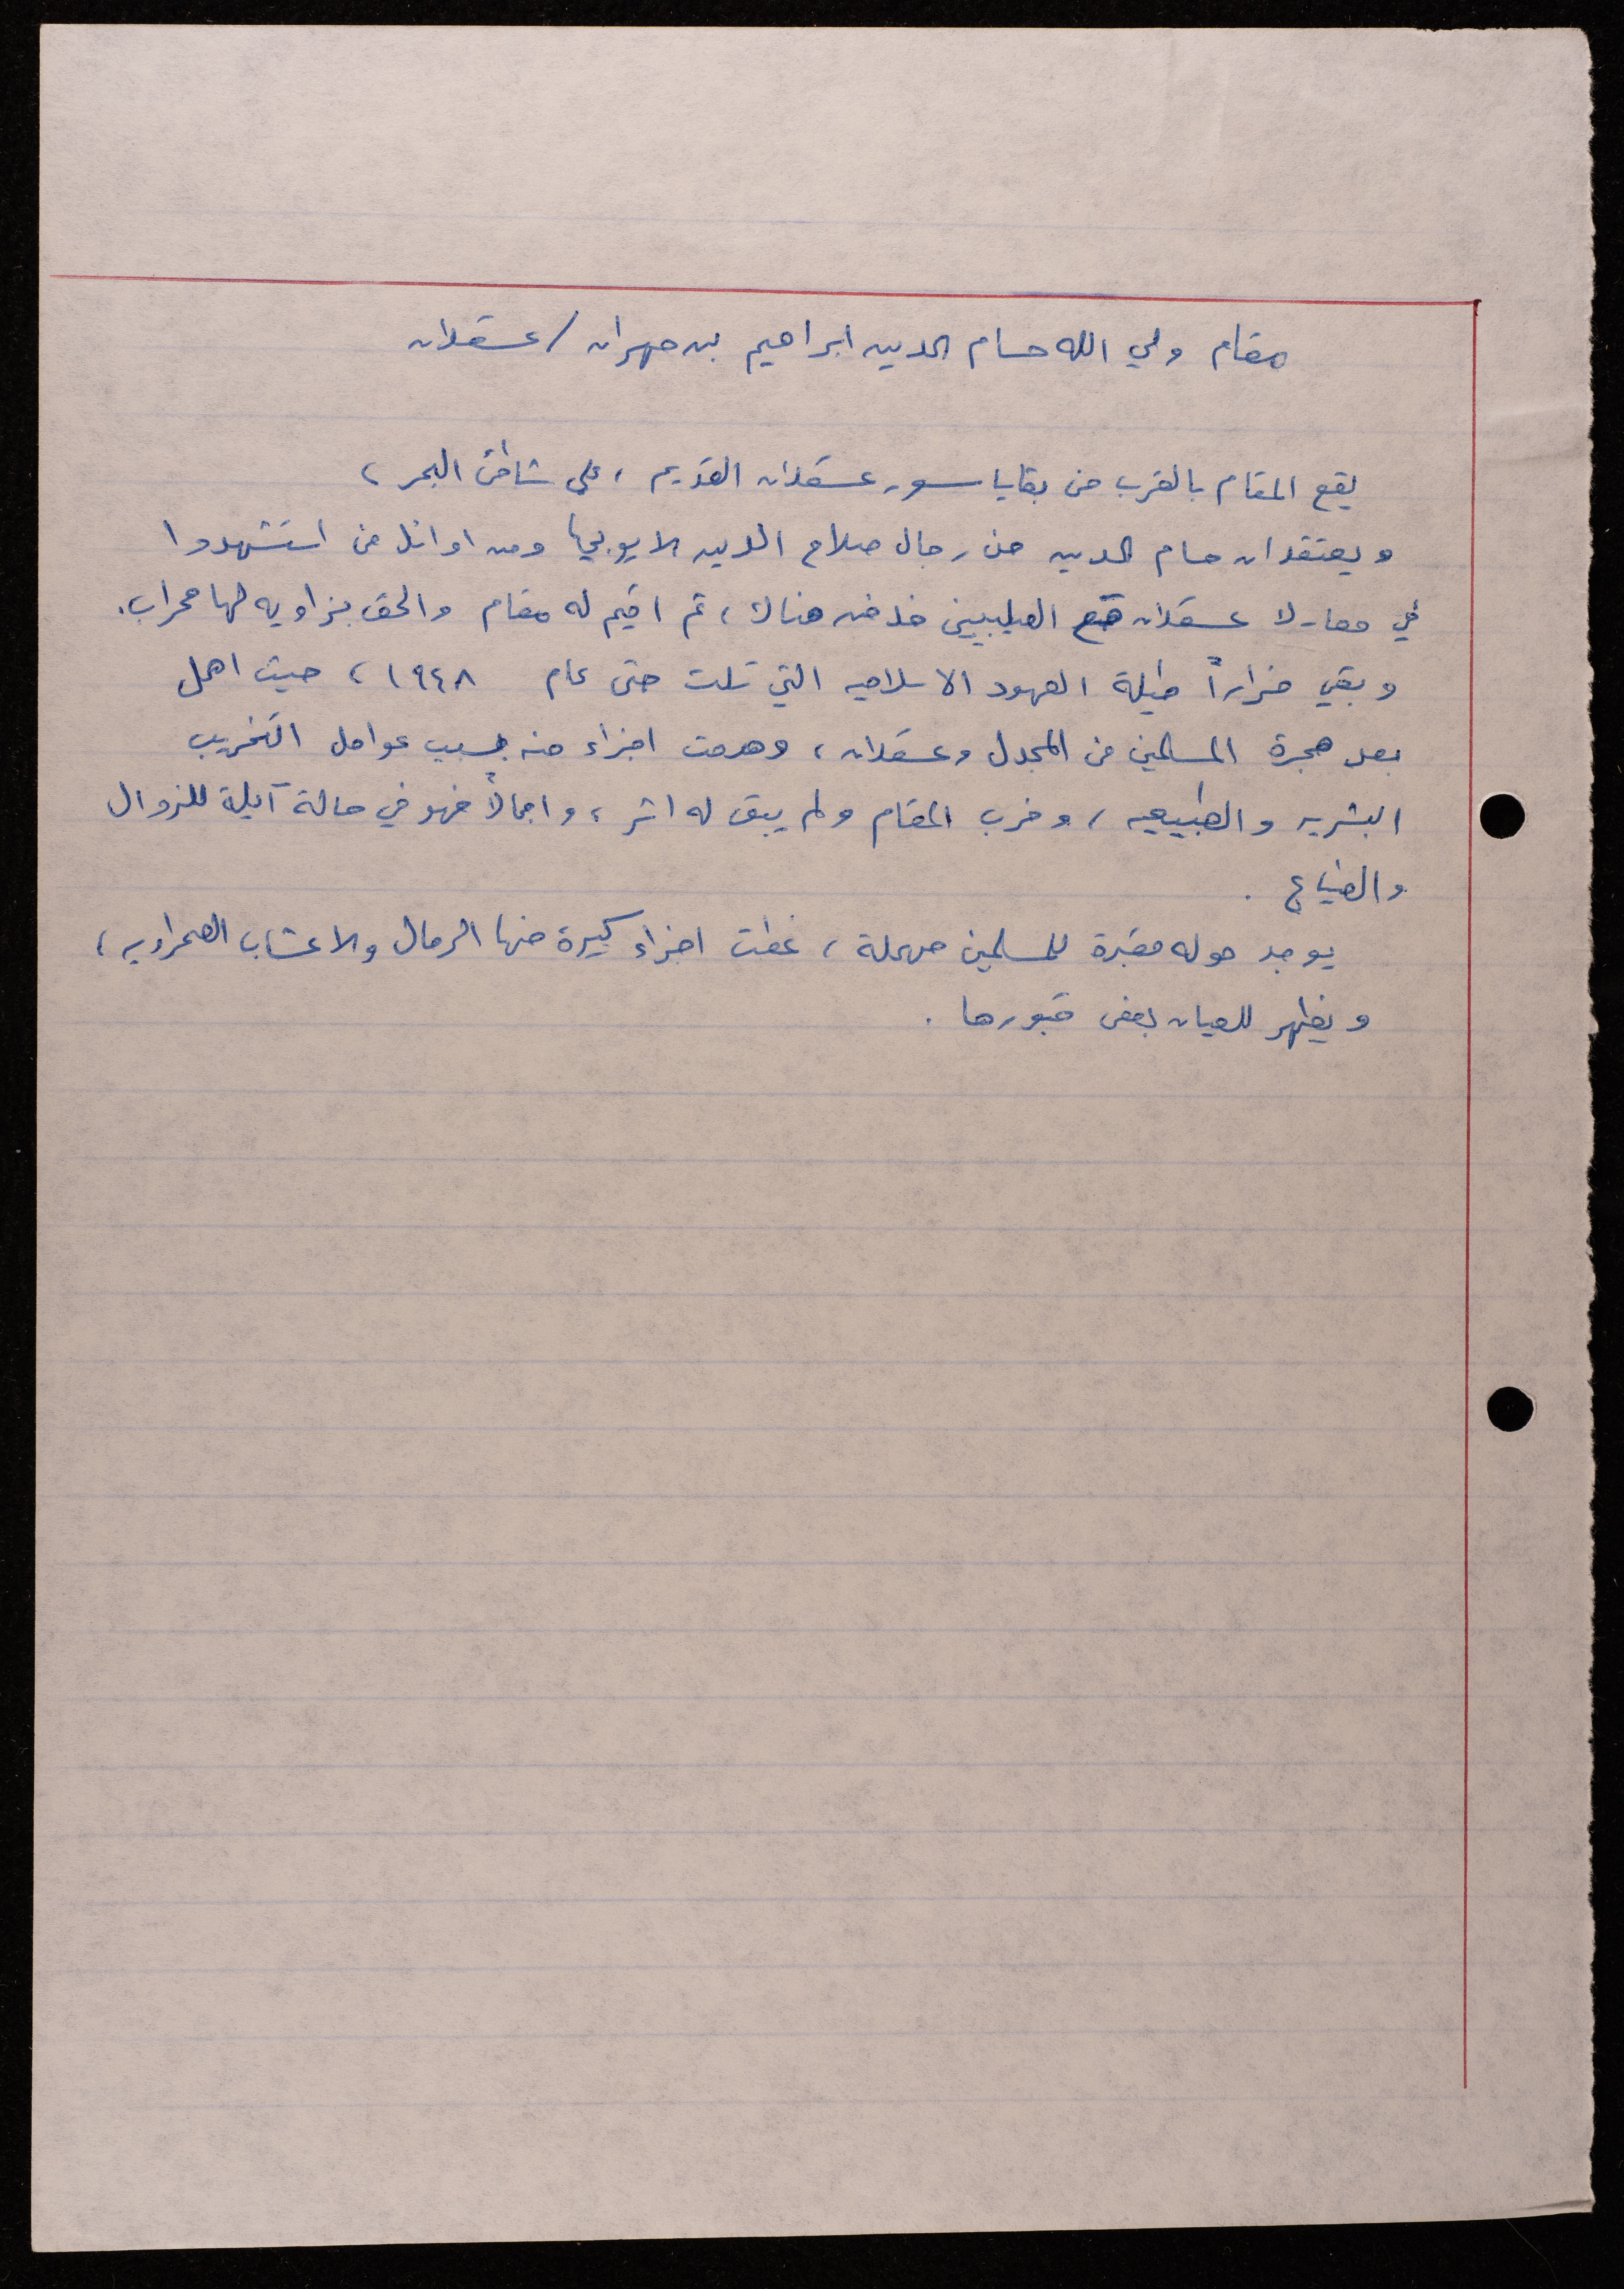 مقام ولي الله حسام الدين ابراهيم بن مهران / عسقلان
يقع المقام بالقرب من بقايا سور عسقلان القديم ، على شاطئ البحر ،
ويعتقد ان حسام الدين من رجال صلاح الدين الايوبي ومن اوائل من استشهدوا
في معارك عسقلان مع الصليبيين فدفن هناك ، ثم اقيم له مقام والحق بزاويه لها محراب .
وبقي مزاراً طيلة العهود الاسلاميه التي تلت حتى عام ١٩٤٨ ، حيث اهمل
بعد هجرة المسلمين من المجدل وعسقلان ، وهدمت اجزاء منه بسبب عوامل التخريب
البشريه والطبيعيه ، وخرب المقام ولم يبق له اثر ، واجمالاً فهو في حالة آيلة للزوال
والضياع .
يوجد حوله مقبرة للمسلمين مهملة ، غطت اجزاء كبيرة منها الرمال والاعشاب الصحراويه ،
ويظهر للعيان بعض قبورها .